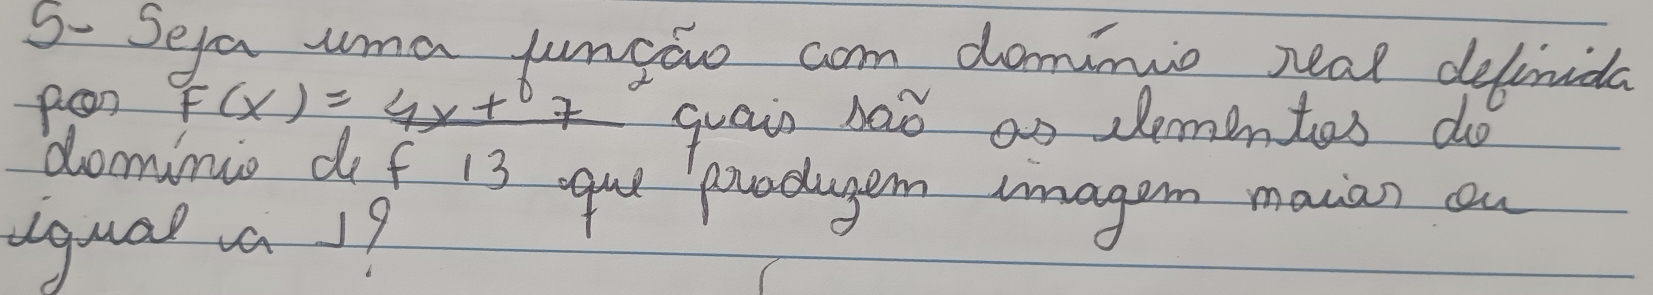 5- Seja uma função com domínio real definida
por F(x) = 4x + 7 quais são os elementos do
domínio de f 13 que produzem imagem maior ou
igual a 1?